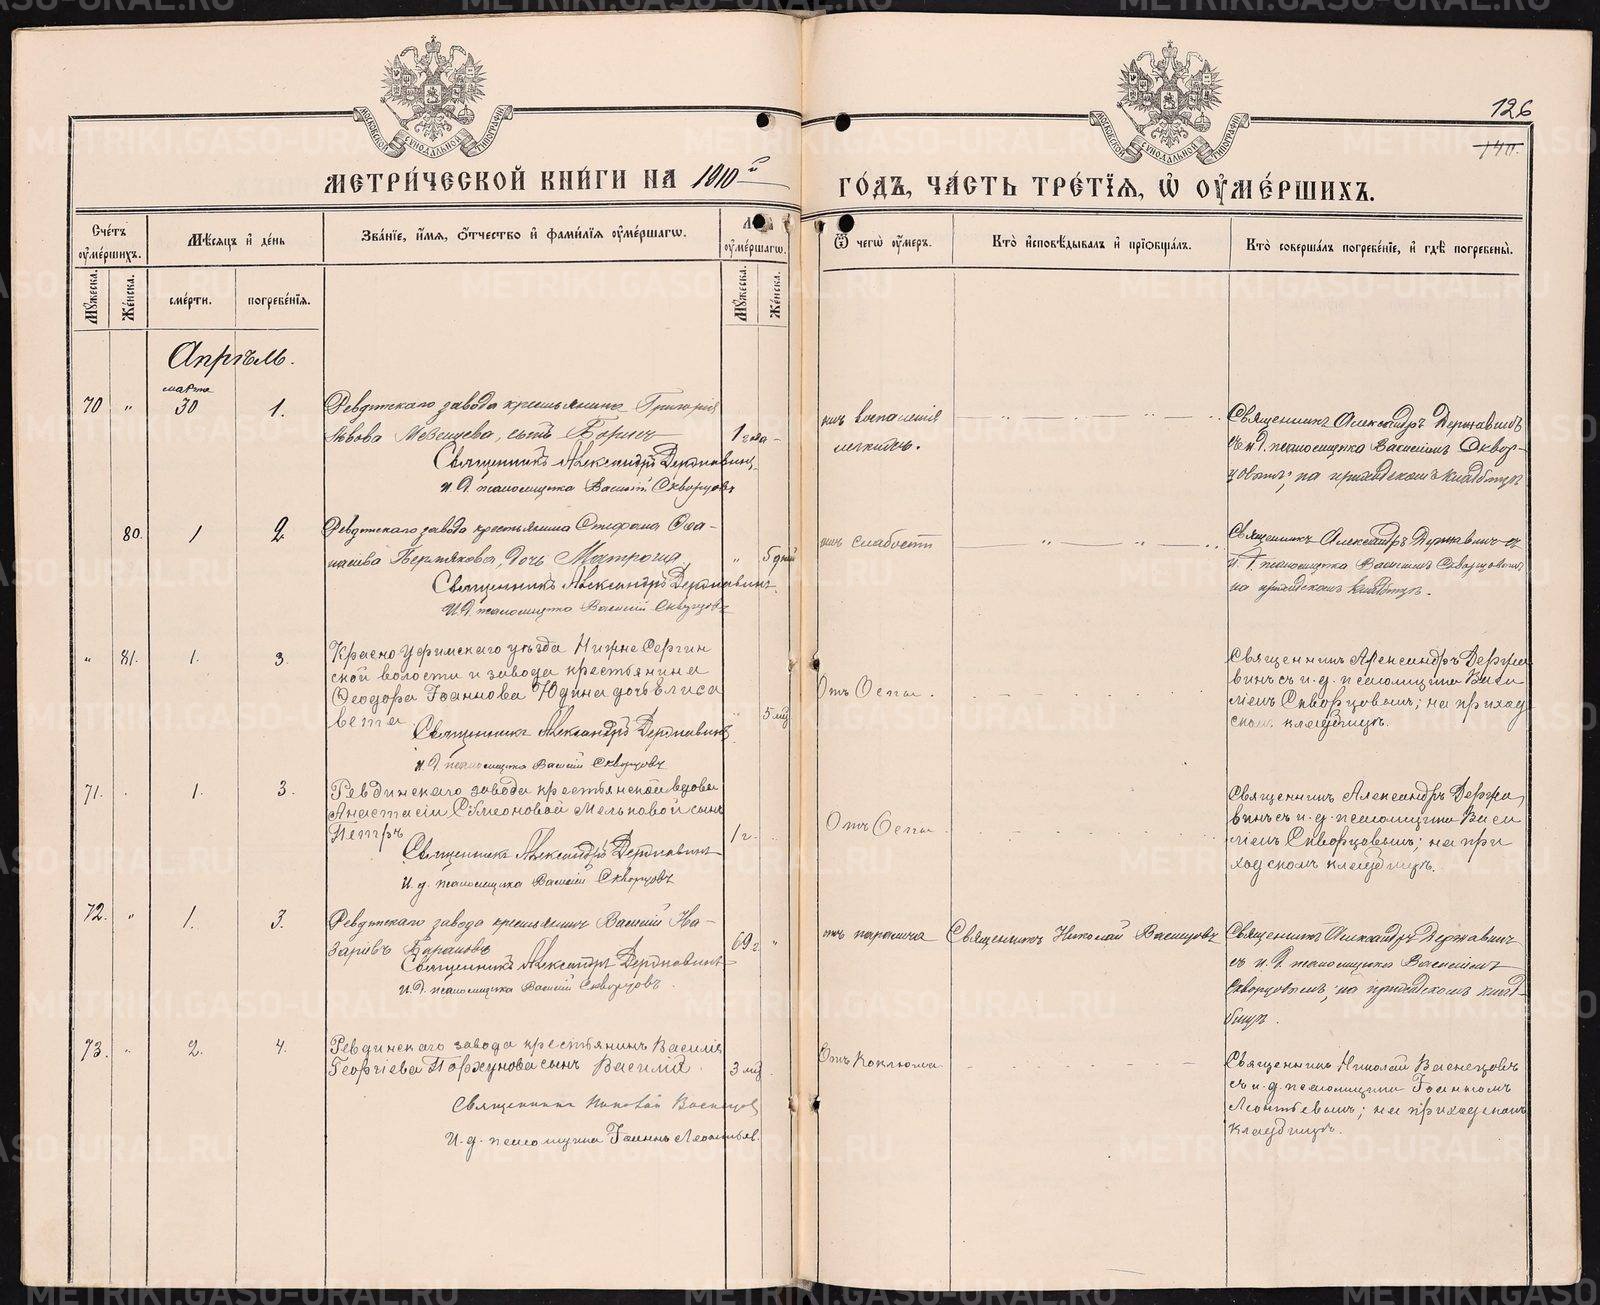 126
140.
МОСКОВСКОЙ СѴНОДАЛЬНОЙ ТИПОГРАФІИ
МОСКОВСКОЙ СѴНОДАЛЬНОЙ ТИПОГРАФІИ
МЕТРИ́ЧЕСКОЙ КНИ́ГИ НА 1910й
ГО́ДЪ, ЧА́СТЬ ТРЕ́ТЇѦ, Ѡ҆ ОУ҆МЕ́РШИХЪ.
Сче́тъ оу҆ме́ршихъ.
Мѣ́сѧцъ и҆ де́нь
Зва́нїе, и҆́мѧ, ѻ҆́тчество и҆ фами́лїѧ оу҆ме́ршагѡ.
Лѣ́та оу҆ме́ршагѡ.
Ѿ чегѡ̀ оу҆́меръ.
Кто̀ и҆сповѣ́дывалъ и҆ прїѻбща́лъ.
Кто̀ соверша́лъ погребе́нїе, и҆ гдѣ̀ погребены̀.
Мꙋ́жеска.
Же́нска.
сме́рти.
погребе́нїѧ.
Мꙋ́жеска.
Же́нска.
Апрѣль.
марта
70 " 30 1. Ревдинскаго завода крестьянина Григорія
Львова сынъ Борисъ 1 года
Священникъ Александръ Державинъ
И. д. псаломщика Василій Скворцовъ
отъ воспаленія
легкихъ.
Священникъ Александръ Державинъ
съ и. д. псаломщика Василіемъ Сквор-
цовымъ; на приходскомъ кладбищѣ
80. 1 2 Ревдинскаго завода крестьянина Стефана Ѳа-
насіева Пермякова, дочь Матрона " 5 дней
Священникъ Александръ Державинъ
И. д. псаломщика Василій Скворцовъ
отъ слабости
Священникъ Александръ Державинъ съ
и. д. псаломщика Василіемъ Скворцовымъ
на приходскомъ кладбищѣ.
" 81. 1. 3. Красноуфимскаго уѣзда Нижне Сергин
ской волости и завода крестьянина
Ѳеодора Іоаннова Юдина дочь Елиса
вета 5 мѣс
Священникъ Александръ Державинъ
И. д. псаломщика Василій Скворцовъ
Отъ Оспы.
Священникъ Александръ Держа
винъ съ и. д. псаломщика Васи
ліемъ Скворцовымъ; на приход
скомъ кладбищѣ.
71. 1. 3. Ревдинскаго завода крестьянской вдовы
Анастасіи Сѵмеоновой Мельковой сынъ
Петръ 1 г.
Священникъ Александръ Державинъ
И. д. псаломщика Василій Скворцовъ
Отъ Оспы.
Священникъ Александръ Держа
винъ съ и. д. псаломщика Васи
ліемъ Скворцовымъ; на при
ходскомъ кладбищѣ.
72. " 1. 3. Ревдинскаго завода крестьянинъ Василій На-
заровъ 69 г. "
Священникъ Александръ Державинъ
И. д. псаломщика Василій Скворцовъ.
отъ паралича
Священникъ Николай Васнецовъ
Священникъ Александръ Державинъ
съ и. д. псаломщика Василіемъ
Скворцовымъ; на приходскомъ клад-
бищѣ.
73. " 2. 4. Ревдинскаго завода крестьянинъ Василія
Георгіева сынъ Василій. 3 мѣс.
Священникъ Николай Васнецовъ
И. д. псаломщика Іоаннъ Леонтьев.
Отъ Коклюша
Священникъ Николай Васнецовъ
съ и. д. псаломщика Іоанномъ
Леонтьевымъ; на приходскомъ
кладбищѣ.
METRIKI.GASO-URAL.RU